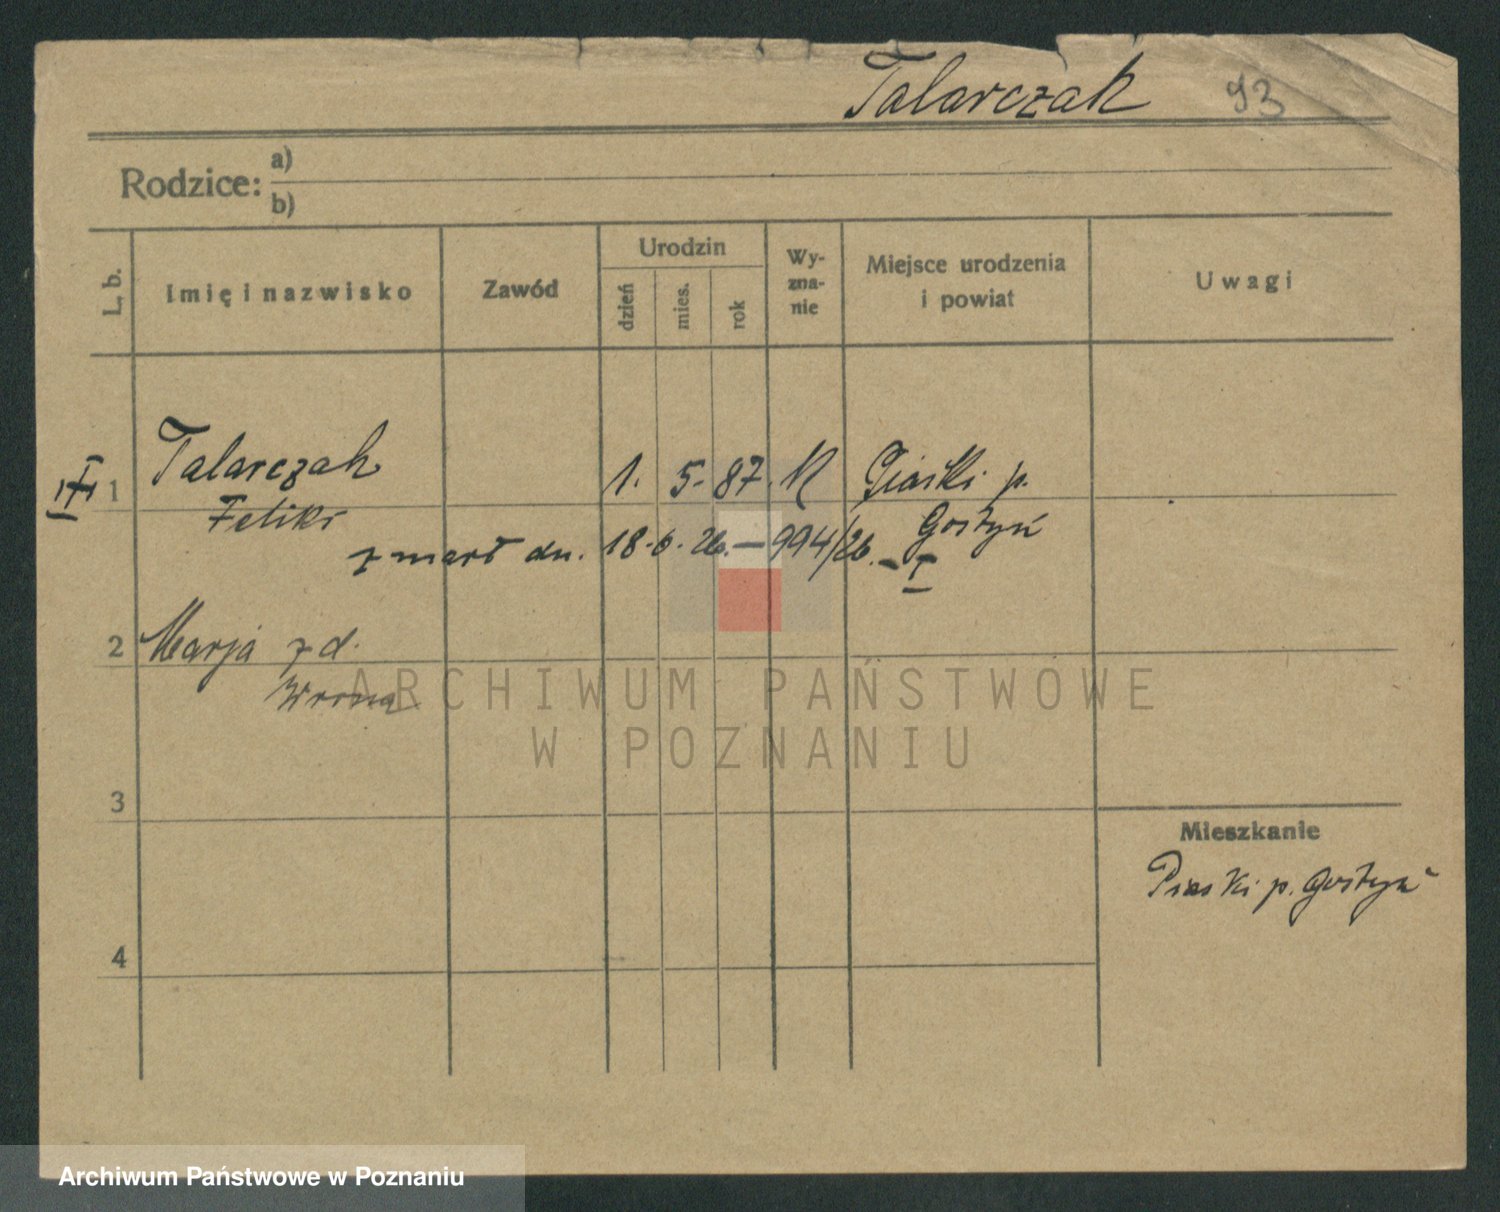 Talarczak 93
Rodzice: a)
b)
L. b. Imię i nazwisko Zawód Urodzin dzień mies. rok Wy-zna-nie Miejsce urodzenia i powiat Uwagi
1 Talarczak 1. 5. 87. K Piaski p.
Feliks Gostyń
zmarł dn. 18.6.26. — 994/26. - I
2 Marja z d.
Wrona
ARCHIWUM PAŃSTWOWE
W POZNANIU
3
Mieszkanie
Piaski p. Gostyń
4
Archiwum Państwowe w Poznaniu